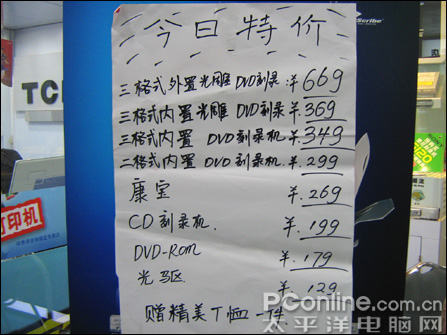 今日特价
三格式外置光雕DVD刻录 ¥669
三格式内置光雕DVD刻录 ¥369
三格式内置 DVD刻录机 ¥349
二格式内置 DVD刻录机 ¥.299
康宝 ¥.269
CD刻录机. ¥.199
DVD-Rom ¥.179
光马区 ¥.129
赠精美T恤一件
TCL
打印机
Scribe
PConline.com.cn
太平洋电脑网